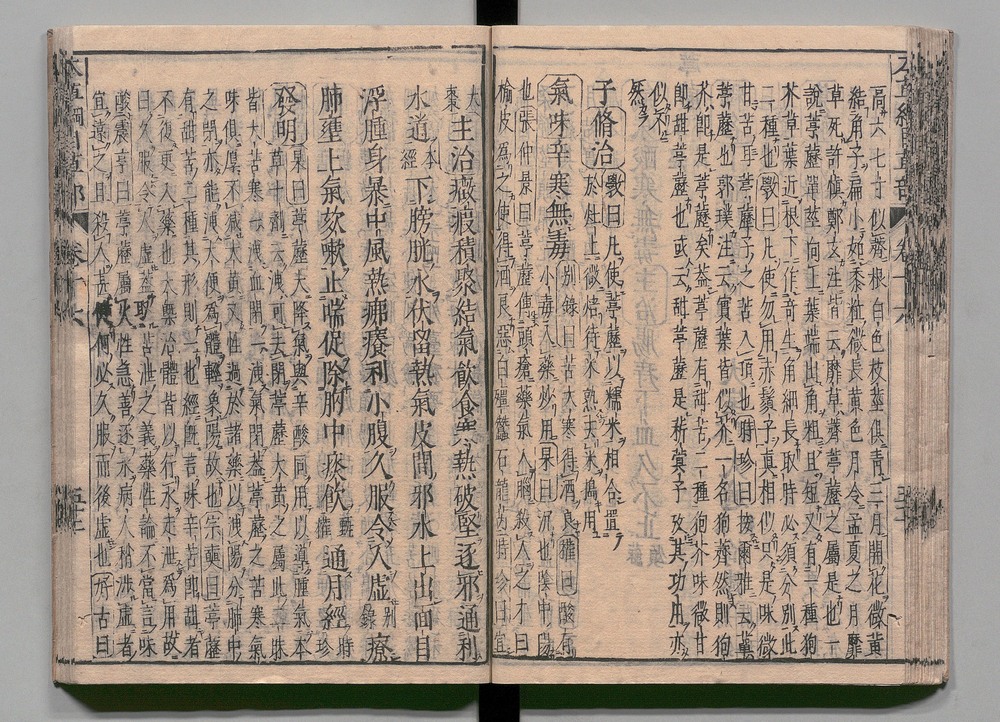 高六七寸似薺根白色枝莖俱青三月開花微黃
結角子扁小如黍粒微長黃色月令孟夏之月靡
草死許慎鄭玄注皆云靡草薺葶藶之屬是也一
說葶藶單莖向上葉端出角粗且短又有一種狗
芥草葉近根下作奇生角細長取時必須分別此
二種也斅曰凡使勿用赤鬚子真相似只是味微
甘苦耳葶藶子之苦入頂也時珍曰按爾雅云蕇
葶藶也郭璞注云實葉皆似芥一名狗薺然則狗
芥即是葶藶矣蓋葶藶有甜苦二種狗芥味微甘
即甜葶藶也或云甜葶藶是菥蓂子攷其功用亦
似不
然
子脩治斅曰凡使葶藶以糯米相合置
於灶上微焙待米熟去米搗用
氣味辛寒無毒別錄曰苦大寒得酒良權曰酸有
小毒入藥炒用杲曰沉也陰中陽
也張仲景曰葶藶傅頭瘡藥氣入腦殺人之才曰
榆皮爲之使得酒良惡白殭蠶石龍芮時珍曰宜
大棗
主治癥瘕積聚結氣飲食寒熱破堅逐邪通利
水道本經下膀胱水伏留熱氣皮間邪水上出面目
浮腫身暴中風熱疿癢利小腹久服令人虛別錄療
肺壅上氣欬嗽止喘促除胸中痰飲甄權通月經時珍
發明杲曰葶藶大降氣與辛酸同用以導腫氣本
草十劑云洩可去閉葶藶大黃之屬此二味
皆大苦寒一洩血閉一洩氣閉蓋葶藶之苦寒氣
味俱厚不減大黃又性過於諸藥以洩陽分肺中
之閉亦能洩大便爲體輕象陽故也宗奭曰葶藶
有甜苦二種其形則一也經既言味辛苦即甜者
不復更入藥也大槩治體皆以行水走泄爲用故
曰久服令人虛蓋取苦泄之義藥性論不當言味
酸震亨曰葶藶屬火性急善逐水病人稍涉虛者
宜遠之且殺人甚健何必久服而後虛也好古曰